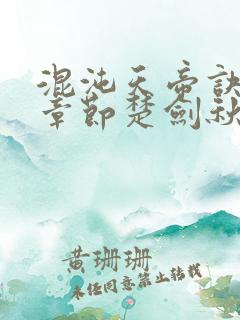 混沌天帝訣
章節楚劍秋
黃珊珊
未经同意禁止转载